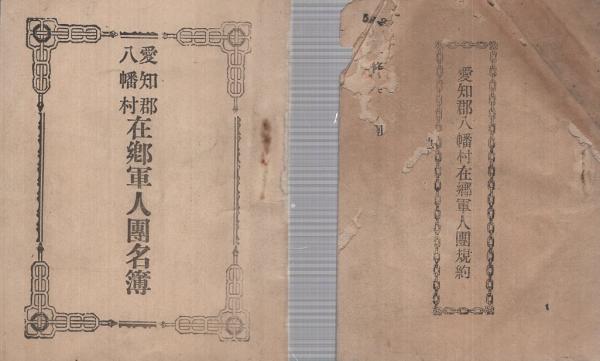 愛知郡
八幡村
在鄉軍人團名簿
愛知郡八幡村在鄉軍人團規約